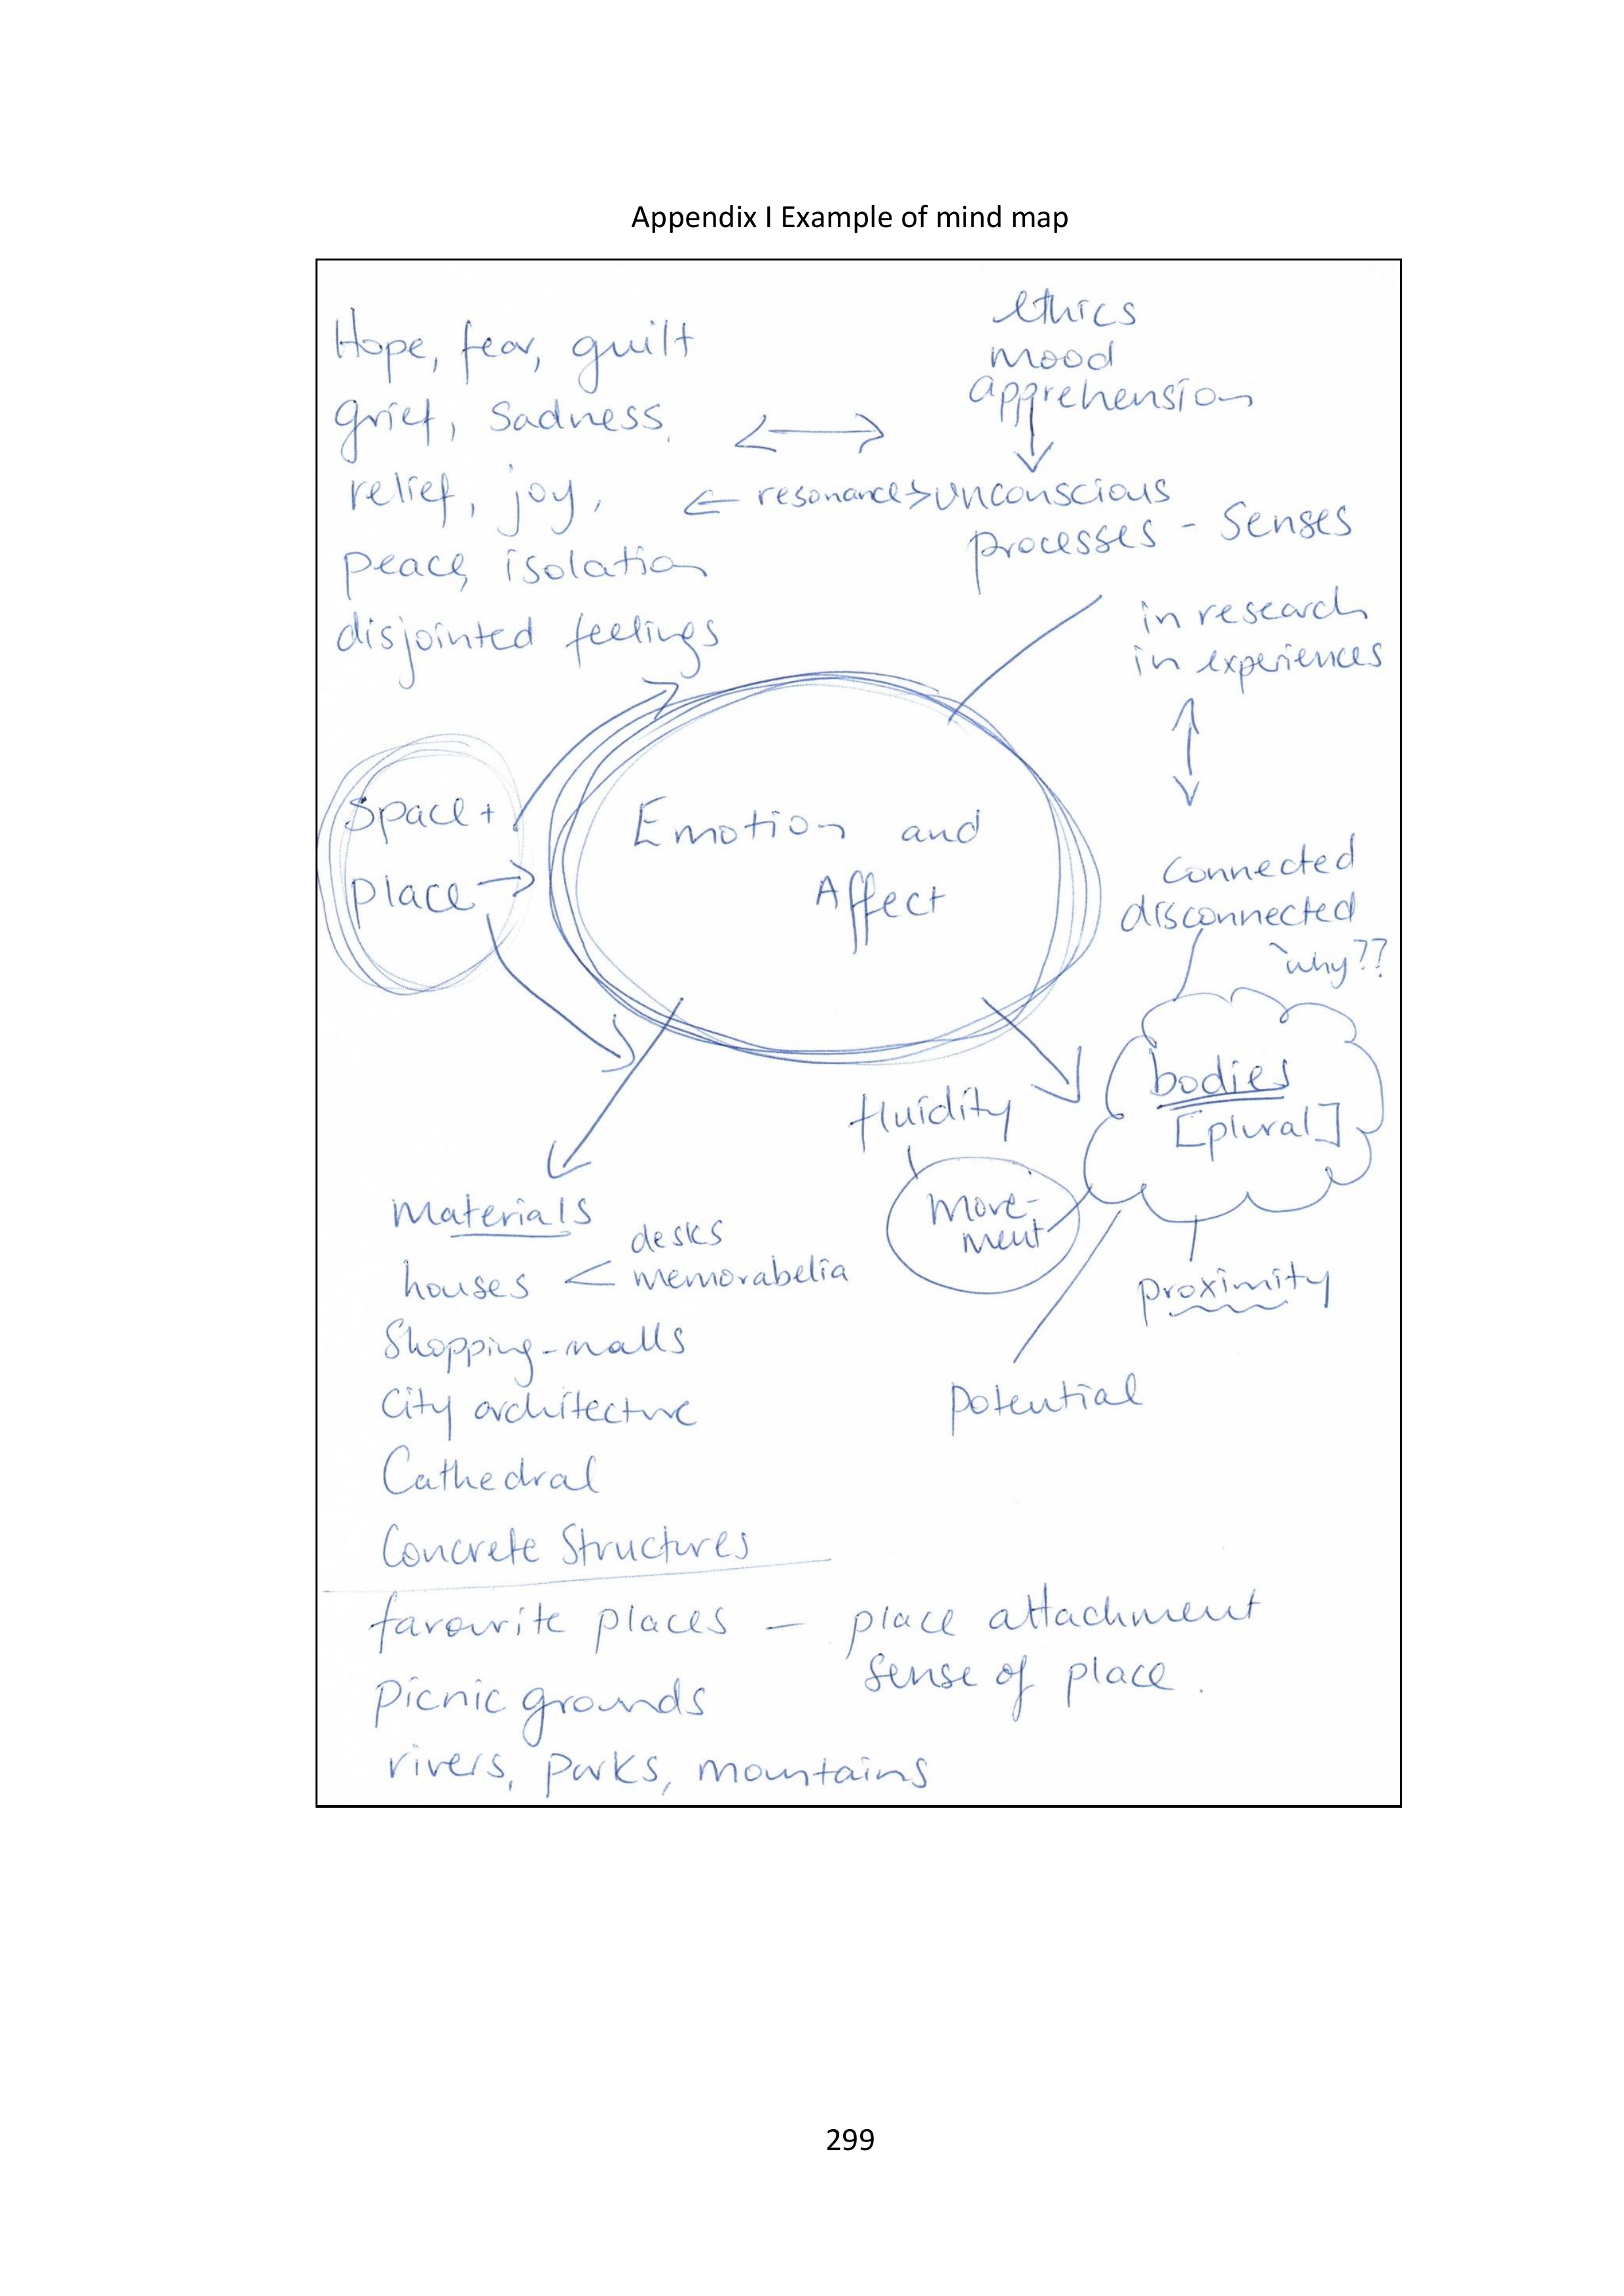 Appendix I Example of mind map
Hope, fear, guilt
grief, sadness,
relief, joy,
peace, isolation
disjointed feelings
ethics
mood
apprehension
← resonance → unconscious
processes - senses
in research
in experiences
connected
disconnected
why??
Space +
place →
Emotion and
Affect
bodies
[plural]
fluidity
move-
ment
proximity
potential
Materials
desks
houses < memorabelia
Shopping-malls
City architecture
Cathedral
Concrete Structures
favourite places – place attachment
sense of place.
Picnic grounds
rivers, parks, mountains
299